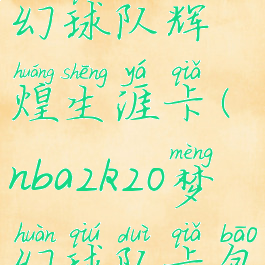 幻球队辉
huáng shēng yá qiǎ
煌生涯卡(
mèng
nba2k20梦
huàn qiú duì qiǎ bāo
幻球队卡包